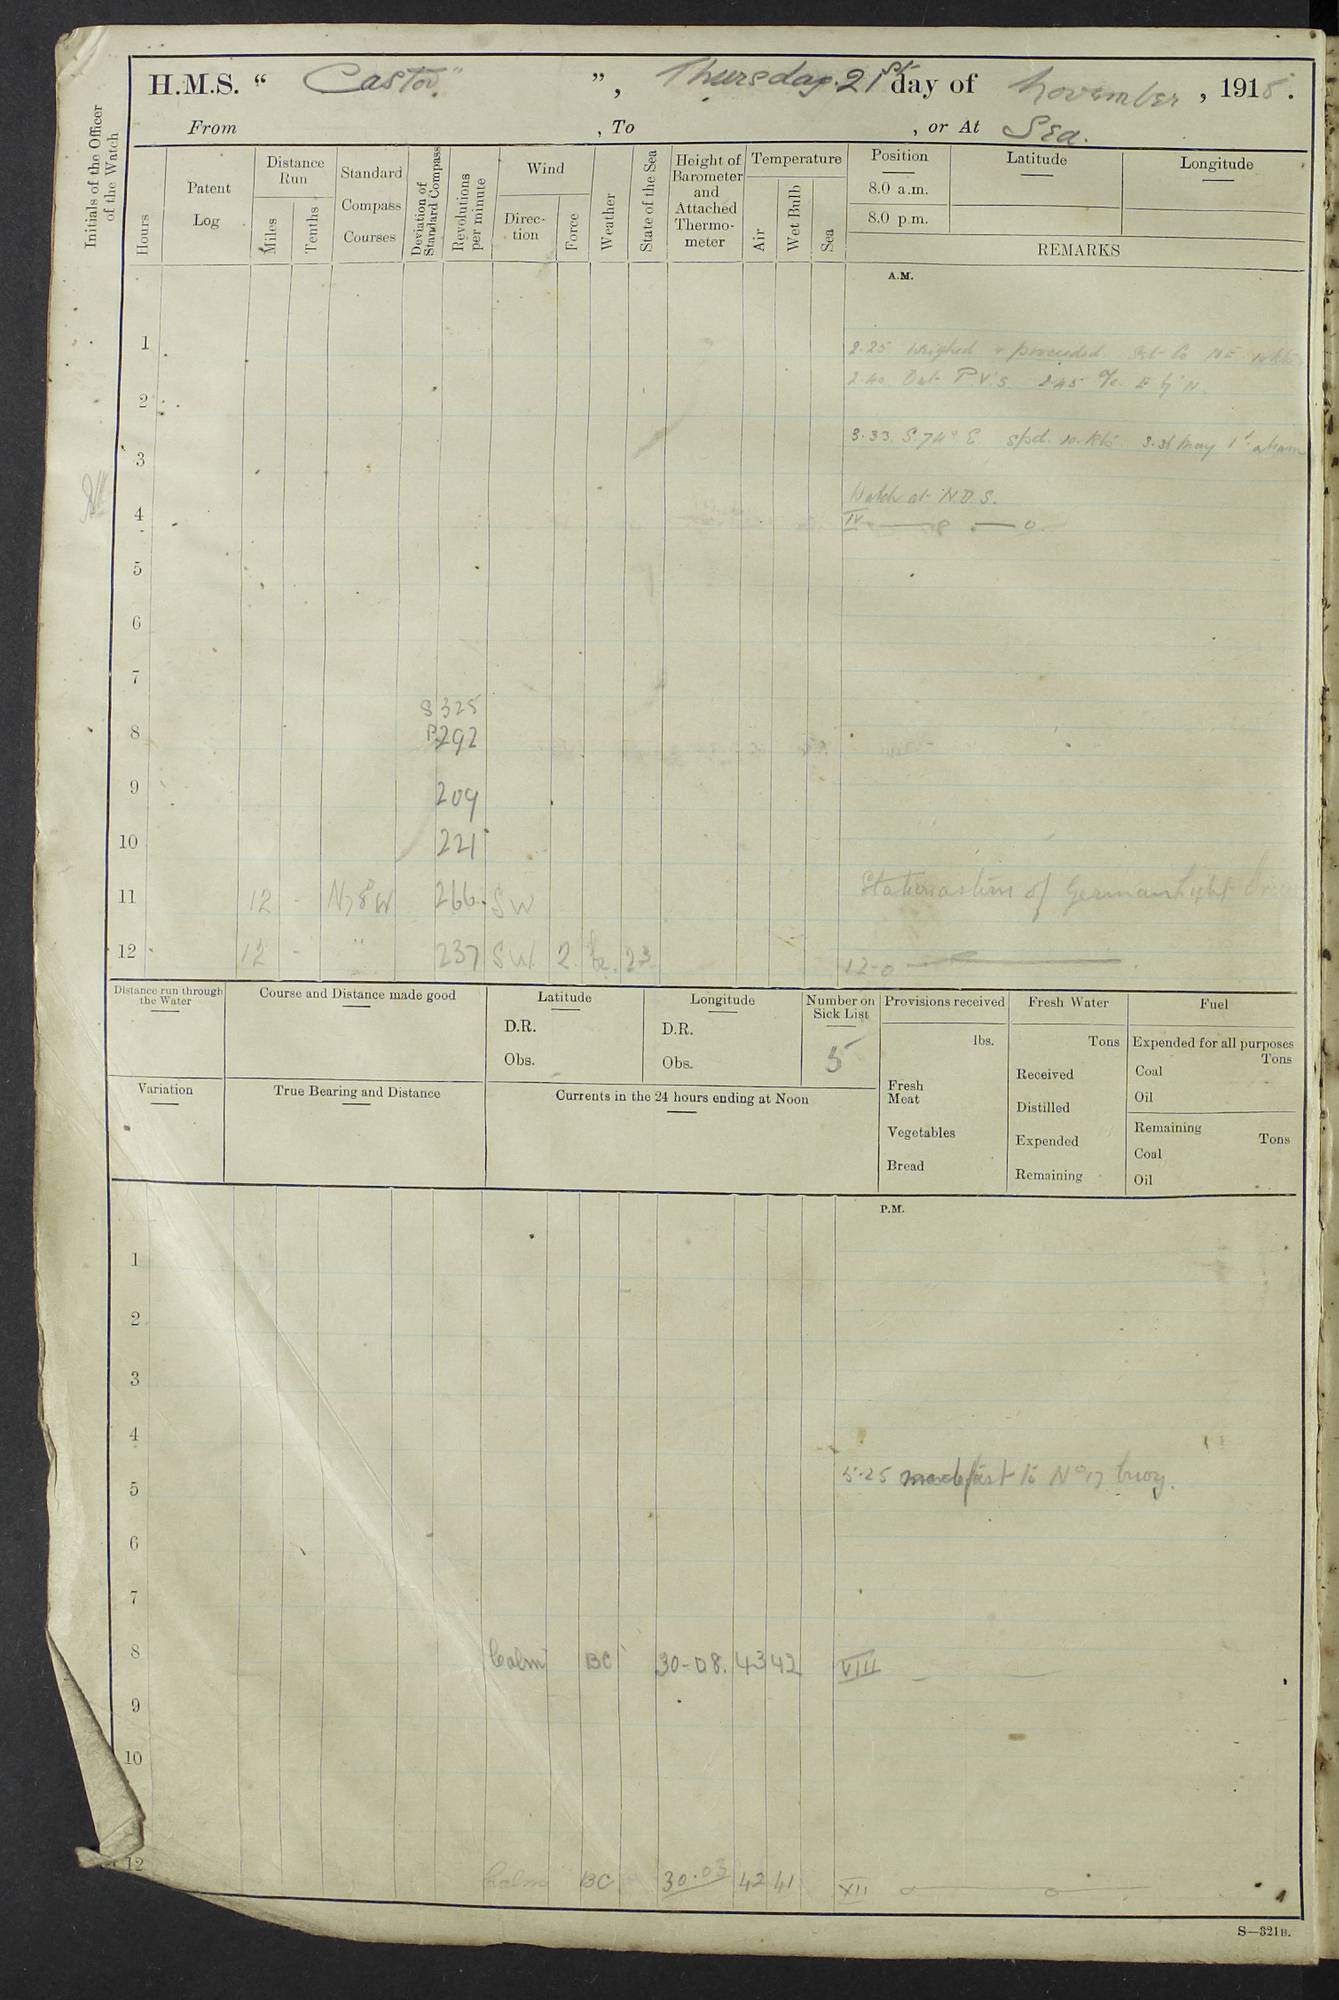 H.M.S. " Castor " ", Thursday 21st day of November, 1918.
From , To , or At Sea.
Initials of the Officer of the Watch
Hours
Patent Log
Distance Run
Miles
Tenths
Standard Compass Courses
Deviation of Standard Compass
Revolutions per minute
Wind
Direc-tion
Force
Weather
State of the Sea
Height of Barometer and Attached Thermo-meter
Temperature
Air
Wet Bulb
Sea
Position Latitude Longitude
8.0 a.m.
8.0 p.m.
REMARKS
A.M.
1
2.25 Weighed & proceeded. Set Co NE 10 Kts
2.40 Out P.V's. 2.45 a/c E by N.
2
3.33 S.74°E. Spd. 10. Kts 3.36 May Id abeam
3
Watch at N.D.S.
4 IV
5
6
7
S 325
8 P 292
9 209
10 221
11 12 - N78W 266 SW Stationastern of German Light
12 12 - " 237 SW 2 bc. 23 12-0
Distance run through the Water
Course and Distance made good
Latitude
D.R.
Obs.
Longitude
D.R.
Obs.
Number on Sick List
5
Provisions received
lbs.
Fresh Meat
Vegetables
Bread
Fresh Water
Tons
Received
Distilled
Expended
Remaining
Fuel
Expended for all purposes
Tons
Coal
Oil
Remaining
Tons
Coal
Oil
Variation
True Bearing and Distance
Currents in the 24 hours ending at Noon
P.M.
1
2
3
4
5.25 made fast to No 17 buoy.
5
6
7
8 Calm BC 30-08. 43 42 VIII
9
10
12 Calm BC 30.03 42 41 XII
S—321B.